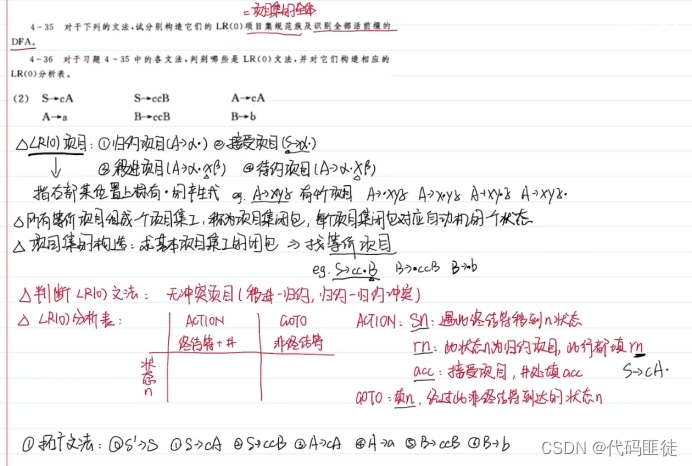 =项目集的全体
4-35 对于下列的文法,试分别构造它们的 LR(0)项目集规范族及识别全部活前缀的
DFA。
4-36 对于习题 4-35 中的各文法,判别哪些是 LR(0)文法,并对它们构造相应的
LR(0)分析表。
(2) S→cA S→ccB A→cA
A→a B→ccB B→b
△LR(0)项目:①归约项目(A→α·) ②接受项目(S→α·)
③移进项目(A→α·Xβ) ④待约项目(A→α·Xβ)
指右部某位置上标有·的产生式 eg. A→xyz 有的项目 A→·xyz A→x·yz A→xy·z A→xyz·
△所有等价项目组成一个项目集I,称为项目集闭包,每个项目集闭包对应自动机的一个状态
△项目集的构造:求基本项目集I的闭包 ⇒ 找等价项目
eg. S→cc·B B→·ccB B→·b
△判断LR(0)文法: 无冲突项目(移进-归约,归约-归约冲突)
△LR(0)分析表: ACTION GOTO ACTION: Sn:遇此终结符移到n状态
终结符+# 非终结符 rn:此状态n为归约项目,此行都填rn
状态n acc:接受项目,#处填acc S→cA·
GOTO:填n,经过此非终结符到达的状态n
①拓广文法:⓪S'→S ①S→cA ②S→ccB ③A→cA ④A→a ⑤B→ccB ⑥B→b
CSDN @代码匪徒